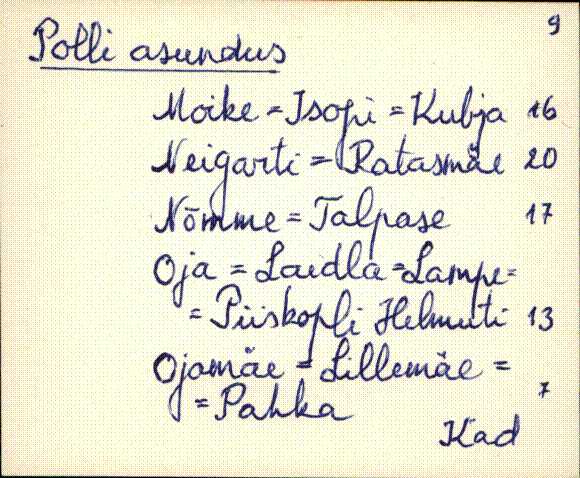 9
Polli asundus
Moike = Isopi = Kubja 16
Neigarti = Ratasmäe 20
Nõmme = Talpase 17
Oja = Laidla = Lampe =
= Piiskopli Helmuti 13
Ojamäe = Lillemäe =
= Pahka 7
Kad